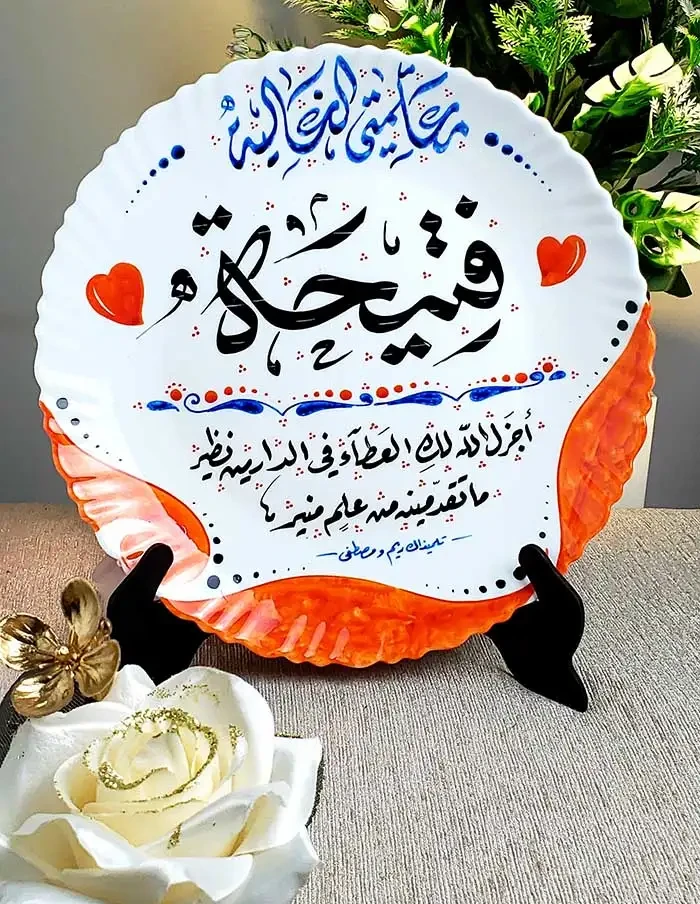 معلمتي الغاليه
فتيحة
أجزل الله لكِ العطآء في الدارين نظير
ما تقدّمينه من علِم منير
تلميذاك ريم و مصطفى